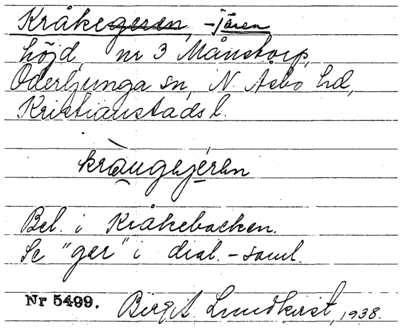 Kråkegeren, -jären
höjd, nr 3 Månstorp,
Oderljunga sn, N. Åsbo hd,
Kristianstads l.
kràugejéren
Bel. i Kråkebacken.
Se "ger" i dial.-saml.
Nr 5499. Birgit Lundkvist, 1938.